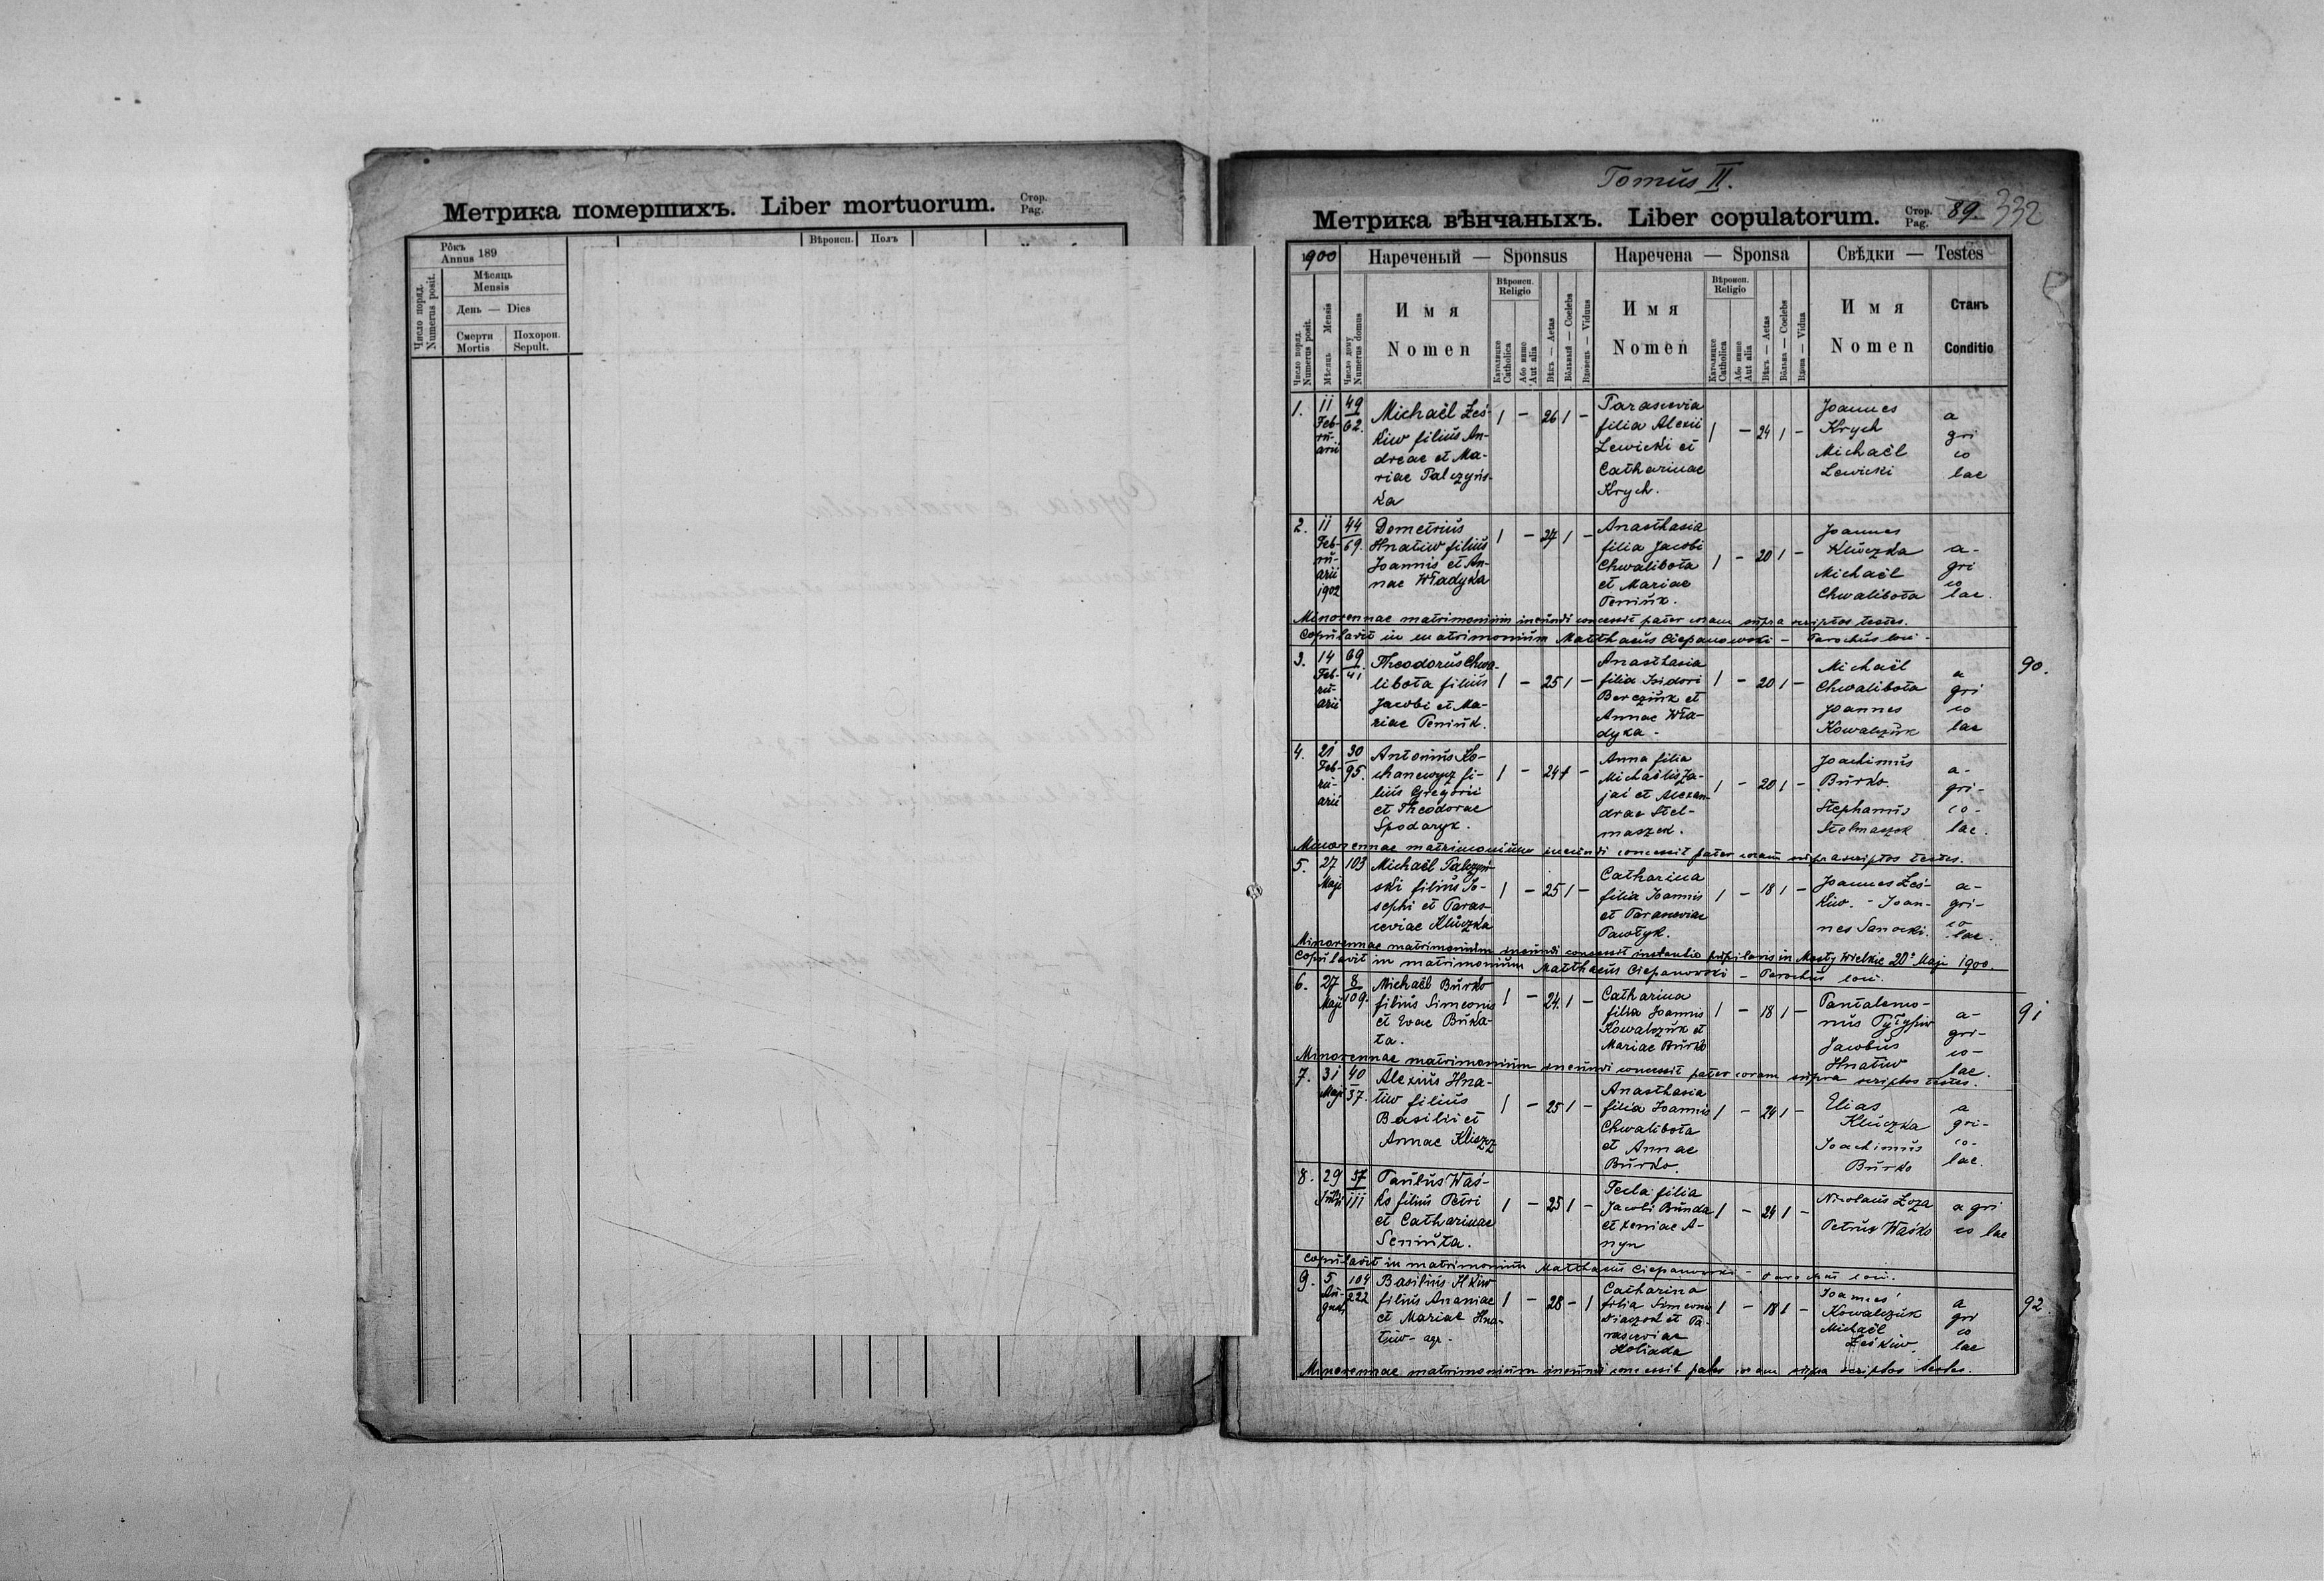 Метрика помершихъ. Liber mortuorum. Стор. Pag.
Рôкъ Annus 189
Вѣроисп. Полъ
Число поряд. Numerus posit.
Мѣсяць Mensis
День — Dies
Смерти Mortis
Похорон. Sepult.
Tomus II.
Метрика вѣнчаныхъ. Liber copulatorum. Стор. Pag. 89. 332
1900 Нареченый — Sponsus Наречена — Sponsa Свѣдки — Testes
Число поряд. Numerus posit.
Мѣсяць Mensis
Число дому Numerus domus
Имя Nomen
Вѣроисп. Religio
Католицке Catholica
Або инше Aut alia
Вѣкъ — Aetas
Вôльный — Coelebs
Вдовець — Viduus
Имя Nomen
Вѣроисп. Religio
Католицке Catholica
Або инше Aut alia
Вѣкъ — Aetas
Вôльна — Coelebs
Вдова — Vidua
Имя Nomen
Станъ Conditio
1. 11 Februarii 49/62.
Michaël Leś-
kiw filius An-
dreae et Ma-
riae Palczyńs-
ka
1 — 26 1 —
Parascevia
filia Alexii
Lewicki et
Catharinae
Krych.
1 — 24 1 —
Joannes
Krych
Michaël
Lewicki
a
gri
co
lae
2. 11 Februarii 1902 44/69.
Demetrius
Hnatiw filius
Joannis et An-
nae Władyka
1 — 27 1 —
Anasthasia
filia Jacobi
Chwalibota
et Mariae
Peniuk.
1 — 20 1 —
Joannes
Kluczka
Michaël
Chwalibota
a-
gri
co
lae.
Minorennae matrimonium ineundi concessit pater coram supra scriptos testes.
Copulavit in matrimonium Matthaeus Ciepanowski — Parochus loci -
3. 14 Februarii 69/41
Theodorus Chwa-
libota filius
Jacobi et Ma-
riae Peniuk.
1 — 25 1 —
Anasthasia
filia Isidori
Berczuk et
Annae Wła-
dyka -
1 — 20 1 —
Michaël
Chwalibota
Joannes
Kowalczuk
a
gri
co
lae
90.
4. 21 Februarii 30/95.
Antonius Ko-
chanewycz fi-
lius Gregorii
et Theodorae
Spodaryk.
1 — 24 1 —
Anna filia
Michaëlis Za-
jai et Alexan-
drae Stel-
maszek.
1 — 20 1 —
Joachimus
Burko
Stephanus
Stelmaszek
a-
gri-
co-
lae.
Minorennae matrimonium ineundi concessit pater coram suprascriptos testes.
5. 27 Maji 103
Michaël Palczyń-
ski filius Jo-
sephi et Paras-
ceviae Kluczka
1 — 25 1 —
Catharina
filia Joannis
et Parasceviae
Pawłyk.
1 — 18 1 —
Joannes Leś-
kiw. - Joan-
nes Sanocki.
a-
gri-
co
lae.
Minorennae matrimonium ineundi concessit instantia pupilaris in Mosty Wielkie 20° Maji 1900.
Copulavit in matrimonium Matthaeus Ciepanowski — Parochus loci.
6. 27 Maji 8/109.
Michaël Burko
filius Simeonis
et Evae Buka-
ta.
1 — 24. 1 —
Catharina
filia Joannis
Kowalczuk et
Mariae Burko
1 — 18 1 —
Pantalemo-
nus
Jacobus
Hnatiw
a-
gri-
co-
lae.
91
Minorennae matrimonium ineundi concessit pater coram supra scriptos testes.
7. 31 Maji 40/37.
Alexius Hna-
tiw filius
Basilii et
Annae Kliszcz
1 — 25 1 —
Anasthasia
filia Joannis
Chwalibota
et Annae
Burko.
1 — 24 1 —
Elias
Kluczka
Joachimus
Burko
a
gri-
co-
lae.
8. 29 Julii 57/111
Paulus Waś-
ko filius Petri
et Catharinae
Seniuta.
1 — 25 1 —
Tecla filia
Jacobi Bunda
et Xeniae A-
nyn
1 — 24 1 —
Nicolaus Łoza
Petrus Waśko
a gri
co lae
Copulavit in matrimonium Matthaeus Ciepanowski — Parochus loci.
9. 5 Augusti 104/222
Basilius Hkiw
filius Ananiae
et Mariae Hna-
tiw - agr -
1 — 28 — 1
Catharina
filia Simeonis
Diaczok et Pa-
rasceviae
Holiada
1 — 18 1 —
Joannes
Kowalczuk
Michaël
Leśkiw.
a
gri
co
lae
92
Minorennae matrimonium ineundi concessit pater coram supra scriptos testes.